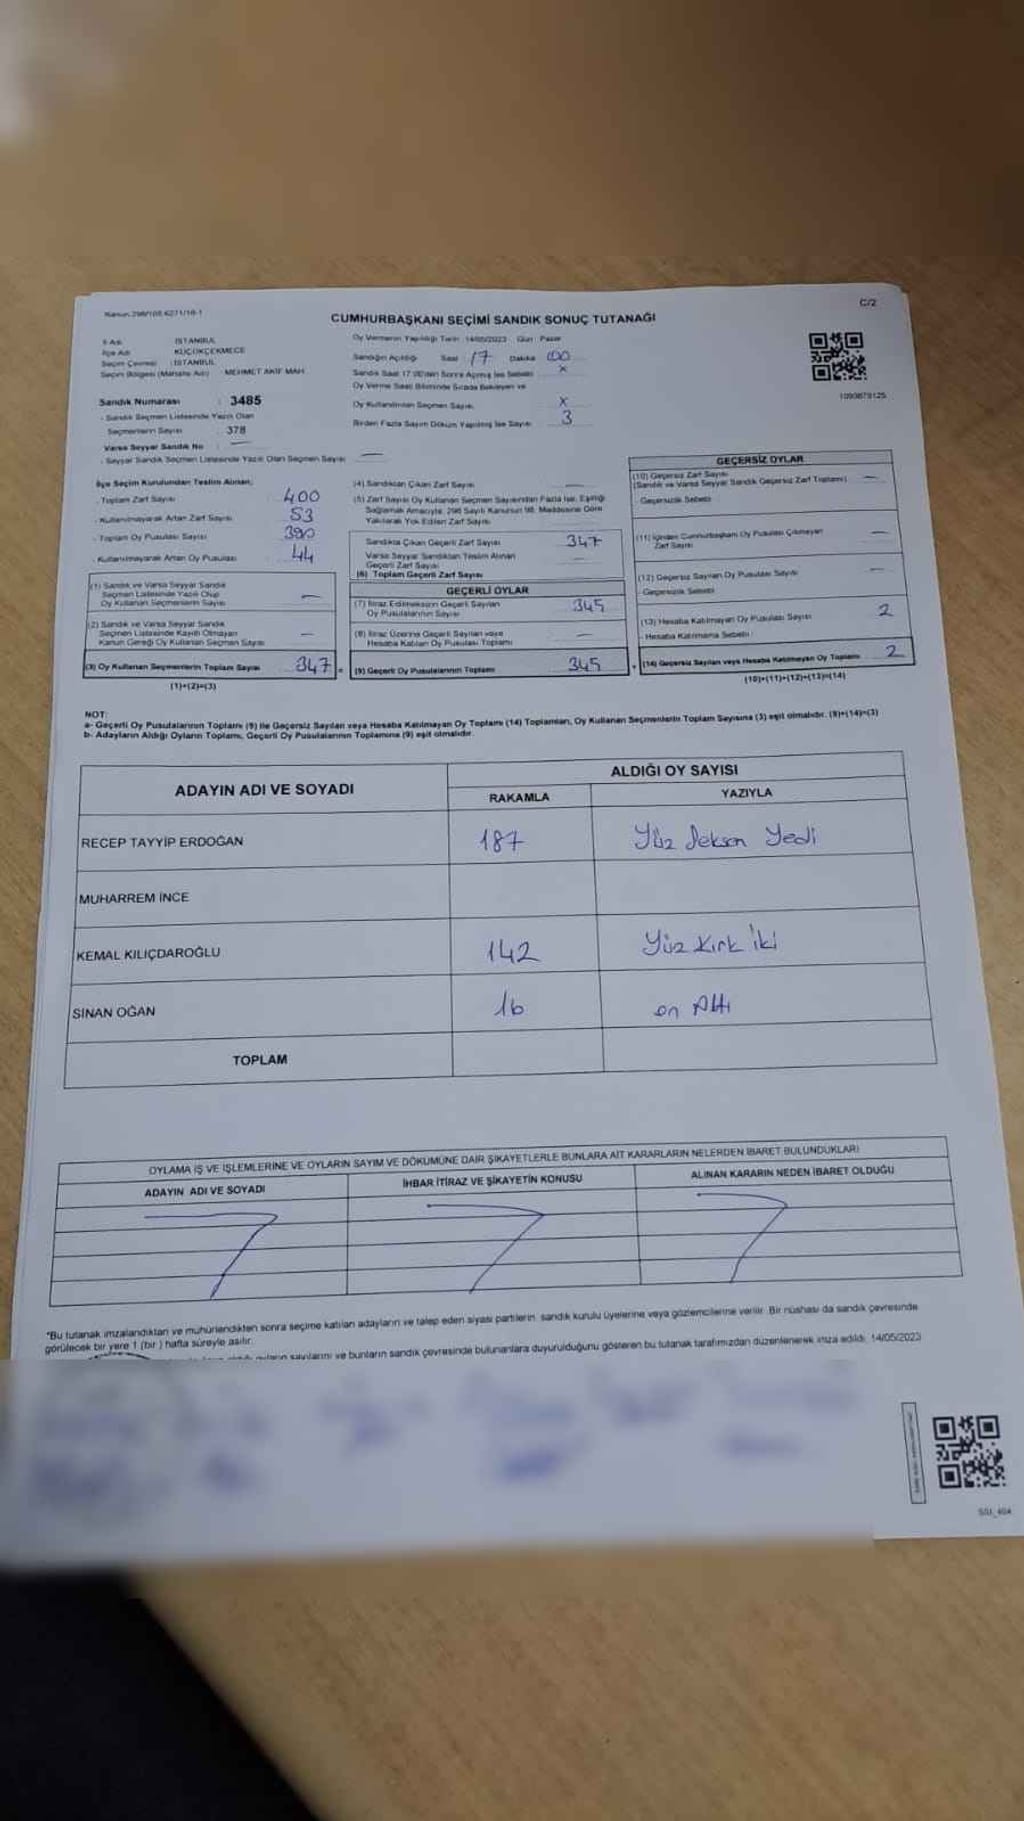 Kanun:298/105,6271/16-1
C/2
CUMHURBAŞKANI SEÇİMİ SANDIK SONUÇ TUTANAĞI
İl Adı : İSTANBUL
İlçe Adı : KÜÇÜKÇEKMECE
Seçim Çevresi : İSTANBUL
Seçim Bölgesi (Mahalle Adı) : MEHMET AKİF MAH
Sandık Numarası : 3485
- Sandık Seçmen Listesinde Yazılı Olan
Seçmenlerin Sayısı : 378
Varsa Seyyar Sandık No : —
- Seyyar Sandık Seçmen Listesinde Yazılı Olan Seçmen Sayısı —
Oy Vermenin Yapıldığı Tarih : 14/05/2023 Gün : Pazar
Sandığın Açıldığı Saat : 17 Dakika : 00
Sandık Saat 17.00'den Sonra Açılmış İse Sebebi : x
Oy Verme Saati Bitiminde Sırada Bekleyen ve
Oy Kullandırılan Seçmen Sayısı : x
Birden Fazla Sayım Döküm Yapılmış İse Sayısı : 3
1090879125
İlçe Seçim Kurulundan Teslim Alınan;
- Toplam Zarf Sayısı : 400
- Kullanılmayarak Artan Zarf Sayısı : 53
- Toplam Oy Pusulası Sayısı : 390
- Kullanılmayarak Artan Oy Pusulası : 44
(1) Sandık ve Varsa Seyyar Sandık
Seçmen Listesinde Yazılı Olup
Oy Kullanan Seçmenlerin Sayısı —
(2) Sandık ve Varsa Seyyar Sandık
Seçmen Listesinde Kayıtlı Olmayan
Kanun Gereği Oy Kullanan Seçmen Sayısı —
(3) Oy Kullanan Seçmenlerin Toplam Sayısı 347 =
(1)+(2)=(3)
(4) Sandıktan Çıkan Zarf Sayısı —
(5) Zarf Sayısı Oy Kullanan Seçmen Sayısından Fazla İse, Eşitliği
Sağlamak Amacıyla, 298 Sayılı Kanunun 98. Maddesine Göre
Yakılarak Yok Edilen Zarf Sayısı —
Sandıkta Çıkan Geçerli Zarf Sayısı 347
Varsa Seyyar Sandıktan Teslim Alınan
Geçerli Zarf Sayısı —
(6) Toplam Geçerli Zarf Sayısı
GEÇERLİ OYLAR
(7) İtiraz Edilmeksizin Geçerli Sayılan
Oy Pusulalarının Sayısı 345
(8) İtiraz Üzerine Geçerli Sayılan veya
Hesaba Katılan Oy Pusulası Toplamı —
(9) Geçerli Oy Pusulalarının Toplamı 345 +
GEÇERSİZ OYLAR
(10) Geçersiz Zarf Sayısı
(Sandık ve Varsa Seyyar Sandık Geçersiz Zarf Toplamı) —
Geçersizlik Sebebi:
(11) İçinden Cumhurbaşkanı Oy Pusulası Çıkmayan
Zarf Sayısı —
(12) Geçersiz Sayılan Oy Pusulası Sayısı —
Geçersizlik Sebebi:
(13) Hesaba Katılmayan Oy Pusulası Sayısı 2
Hesaba Katılmama Sebebi :
(14) Geçersiz Sayılan veya Hesaba Katılmayan Oy Toplamı 2
(10)+(11)+(12)+(13)=(14)
NOT:
a- Geçerli Oy Pusulalarının Toplamı (9) ile Geçersiz Sayılan veya Hesaba Katılmayan Oy Toplamı (14) Toplamları, Oy Kullanan Seçmenlerin Toplam Sayısına (3) eşit olmalıdır. (9)+(14)=(3)
b- Adayların Aldığı Oyların Toplamı, Geçerli Oy Pusulalarının Toplamına (9) eşit olmalıdır.
ADAYIN ADI VE SOYADI
ALDIĞI OY SAYISI
RAKAMLA YAZIYLA
RECEP TAYYİP ERDOĞAN 187 Yüz Seksen Yedi
MUHARREM İNCE
KEMAL KILIÇDAROĞLU 142 Yüz Kırk İki
SİNAN OĞAN 16 On Altı
TOPLAM
OYLAMA İŞ VE İŞLEMLERİNE VE OYLARIN SAYIM VE DÖKÜMÜNE DAİR ŞİKAYETLERLE BUNLARA AİT KARARLARIN NELERDEN İBARET BULUNDUKLARI
ADAYIN ADI VE SOYADI İHBAR İTİRAZ VE ŞİKAYETİN KONUSU ALINAN KARARIN NEDEN İBARET OLDUĞU
*Bu tutanak imzalandıktan ve mühürlendikten sonra seçime katılan adayların ve talep eden siyasi partilerin, sandık kurulu üyelerine veya gözlemcilerine verilir. Bir nüshası da sandık çevresinde
görülecek bir yere 1 (bir ) hafta süreyle asılır.
oyların sayılarını ve bunların sandık çevresinde bulunanlara duyurulduğunu gösteren bu tutanak tarafımızdan düzenlenerek imza edildi. 14/05/2023